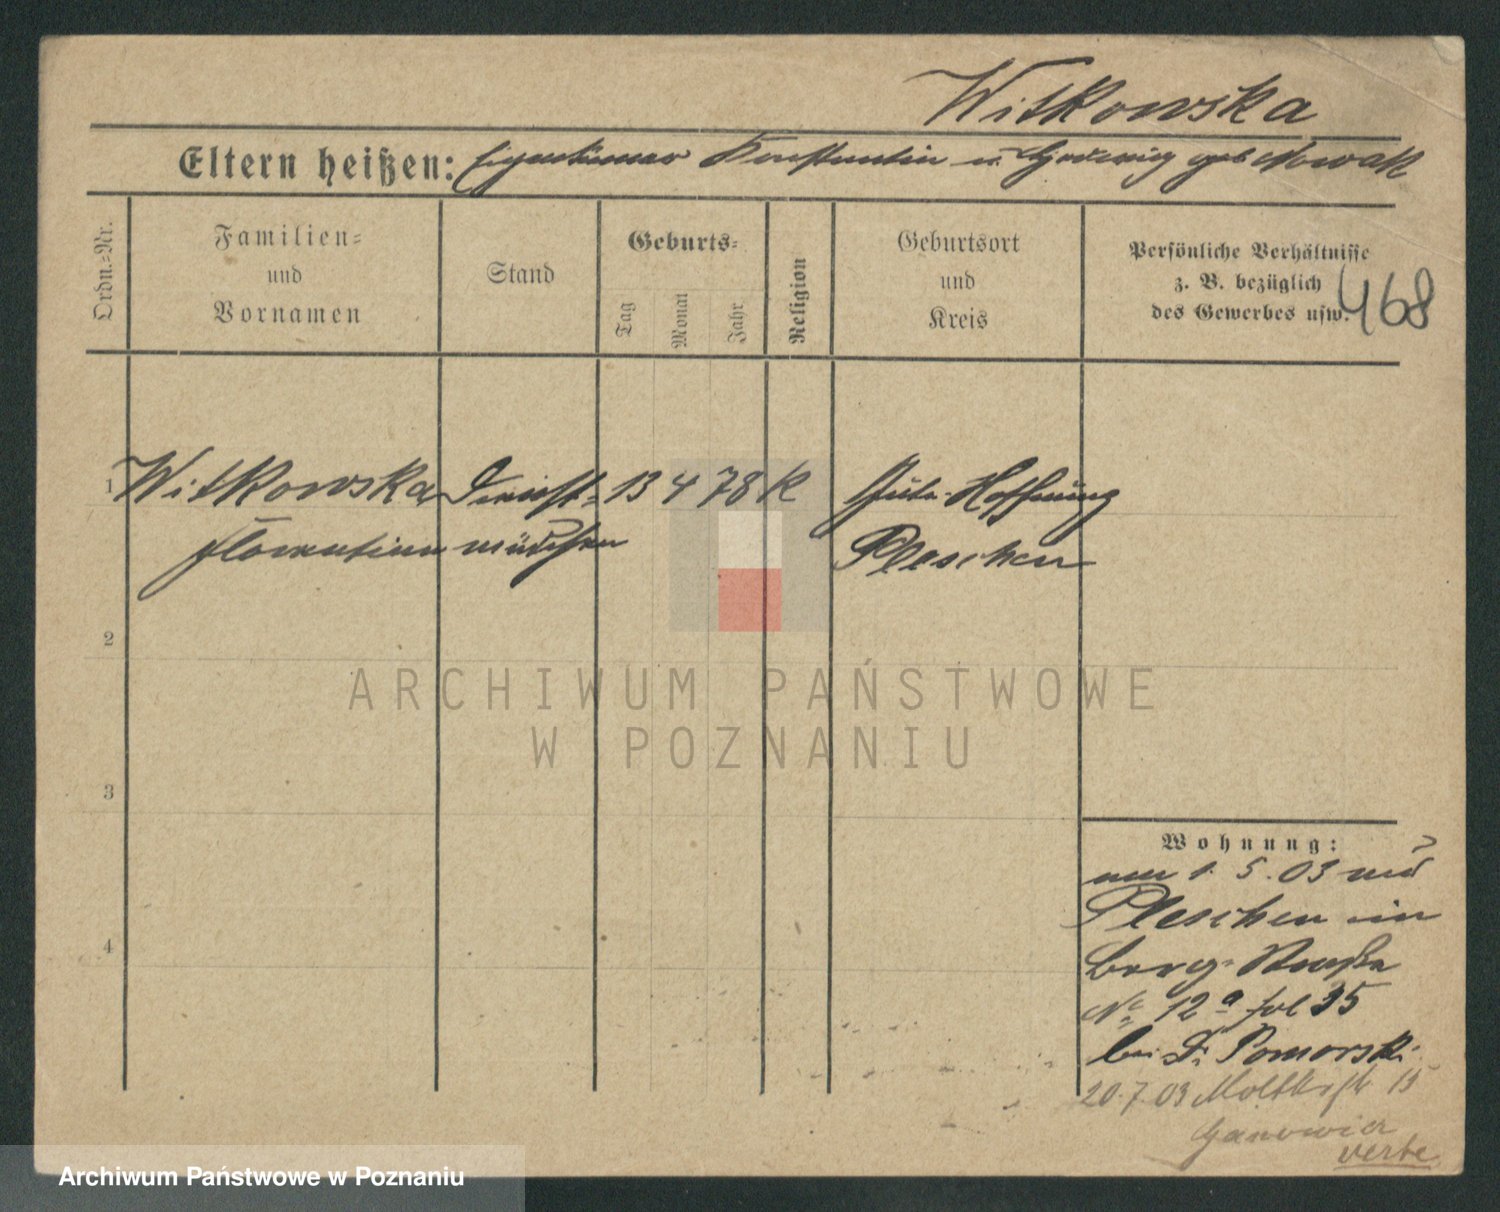 Witkowska
Eltern heißen: Eigentümer Konstantin u. Hedwig geb Nowak
Ordn.=Nr.
Familien=
und
Vornamen
Stand
Geburts=
Tag
Monat
Jahr
Religion
Geburtsort
und
Kreis
Persönliche Verhältnisse
z. B. bezüglich
des Gewerbes usw.
468
1 Witkowska Dienst= 13 4 78 K Gute-Hoffnung
Florentine mädchen Pleschen
2
ARCHIWUM PAŃSTWOWE
W POZNANIU
3
4
Wohnung:
am 1. 5. 03 aus
Pleschen in
Berg-Straße
No 12a fol 35
bei Dr Pomorski
20.7.03 Moltkestr 15
Ganowicz
verte
Archiwum Państwowe w Poznaniu